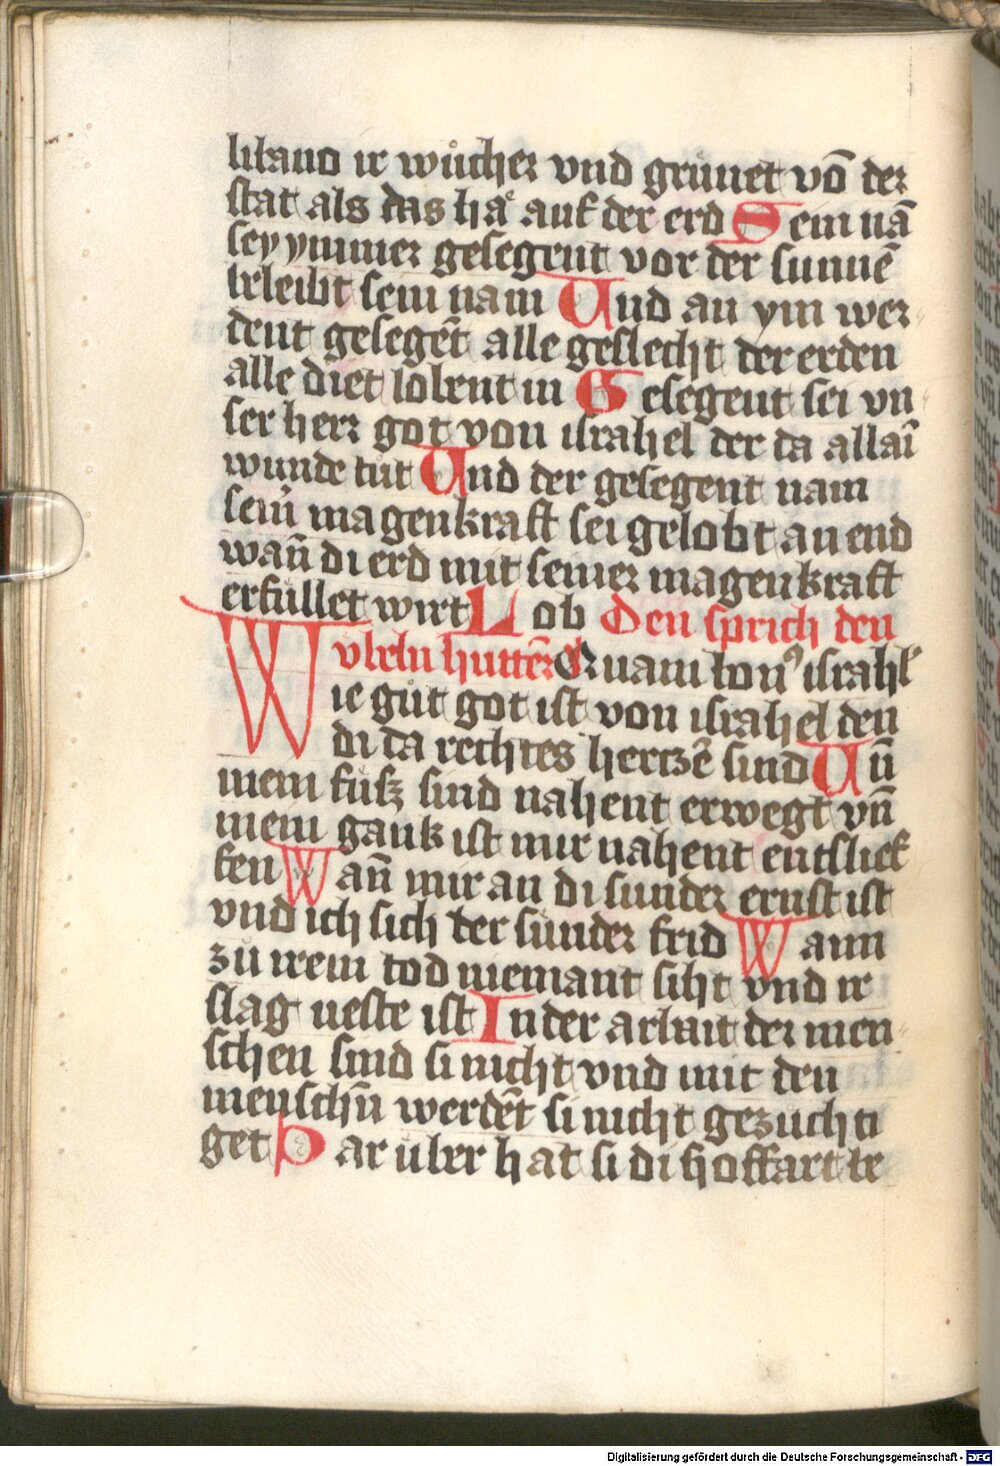 libano ir wůcher vnd grůnet vō der
stat als das haͤ auf der erd Sein nā
sey ymmer gesegent vor der sunnē
beleibt sein nam Und an ym wer
dent gesegēt alle geslecht der erden
alle diet lobent in Gesegent sei vn
ser herr got von israhel der da allaī
wunde tůt Und der gesegent nam
seiñ magenkraft sei gelobt an end
wañ di erd mit seiner magenkraft
erfullet wirt Lob Den sprich den
vbeln huttēr Quam bonꝰ israhl'
Wie gůt got ist von israhel den
di da rechtes hertzē sind Un̄
mein fůsz sind nahent erwegt vn̄
mein gank ist mir nahent entslief
fen Wañ mir an di sunder ernst ist
vnd ich sich der sunder frid Wann
zů irem tod niemant siht vnd ir
slag ueste ist In der arbait der men
schen sind si nicht vnd mit den
menschn̄ werdēt si nicht gezuchti
get Dar uber hat si di hoffart be
Digitalisierung gefördert durch die Deutsche Forschungsgemeinschaft - DFG